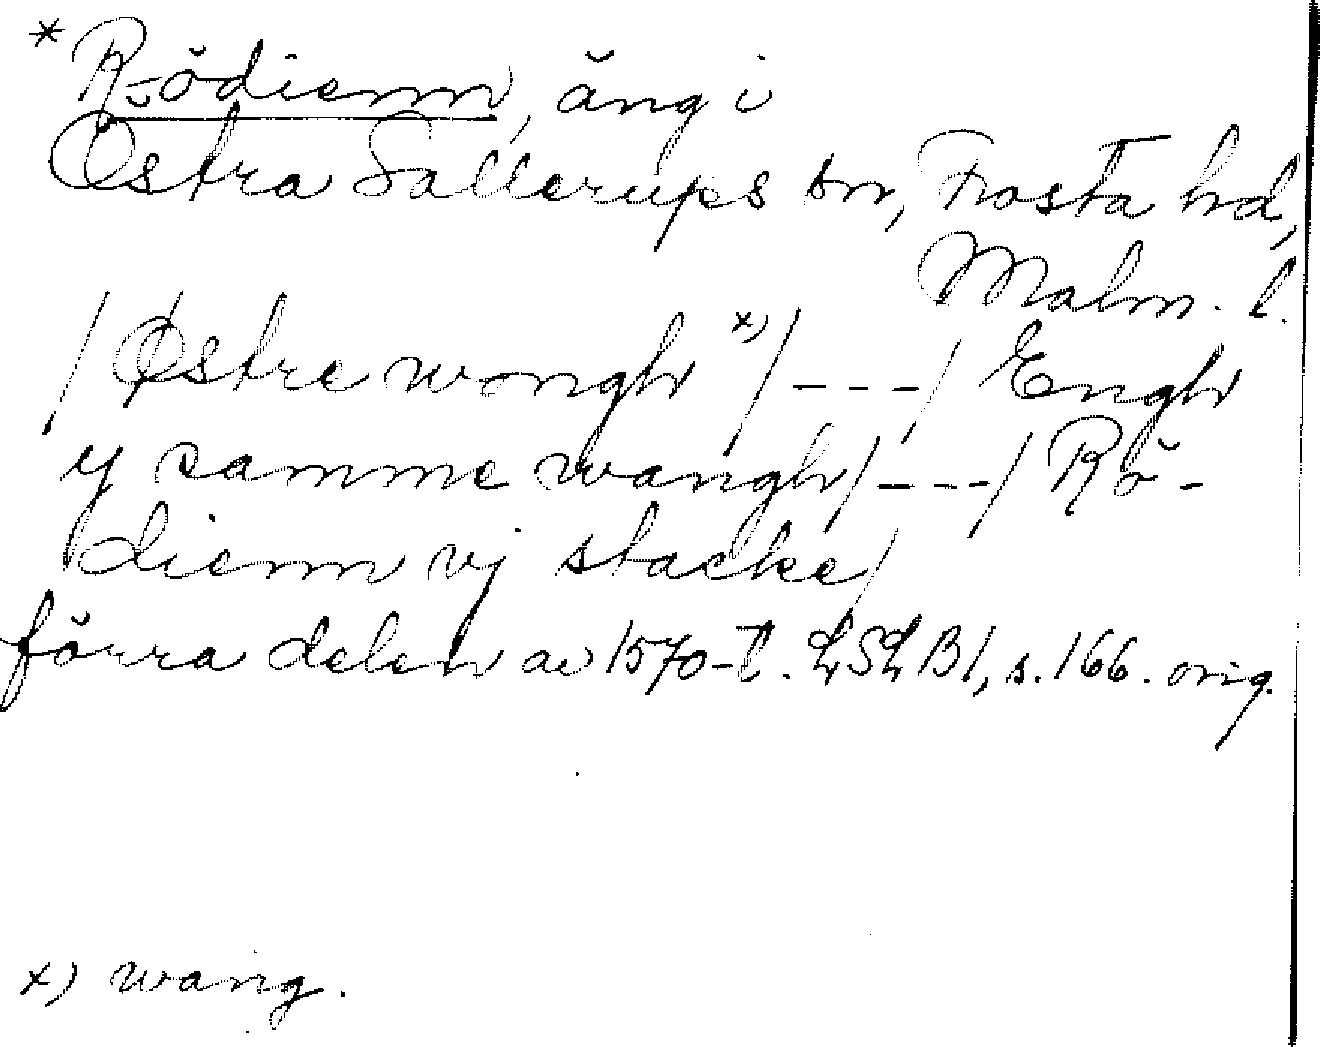 * Rödienn, äng i
Östra Sallerups sn, Frosta hd,
Malm. l.
/Østre wongh x)/---/ Engh
y samme wangh/---/ Rö-
dienn vj stacke/
förra delen av 1570-t. LSL B1, s. 166. orig.
x) wang.